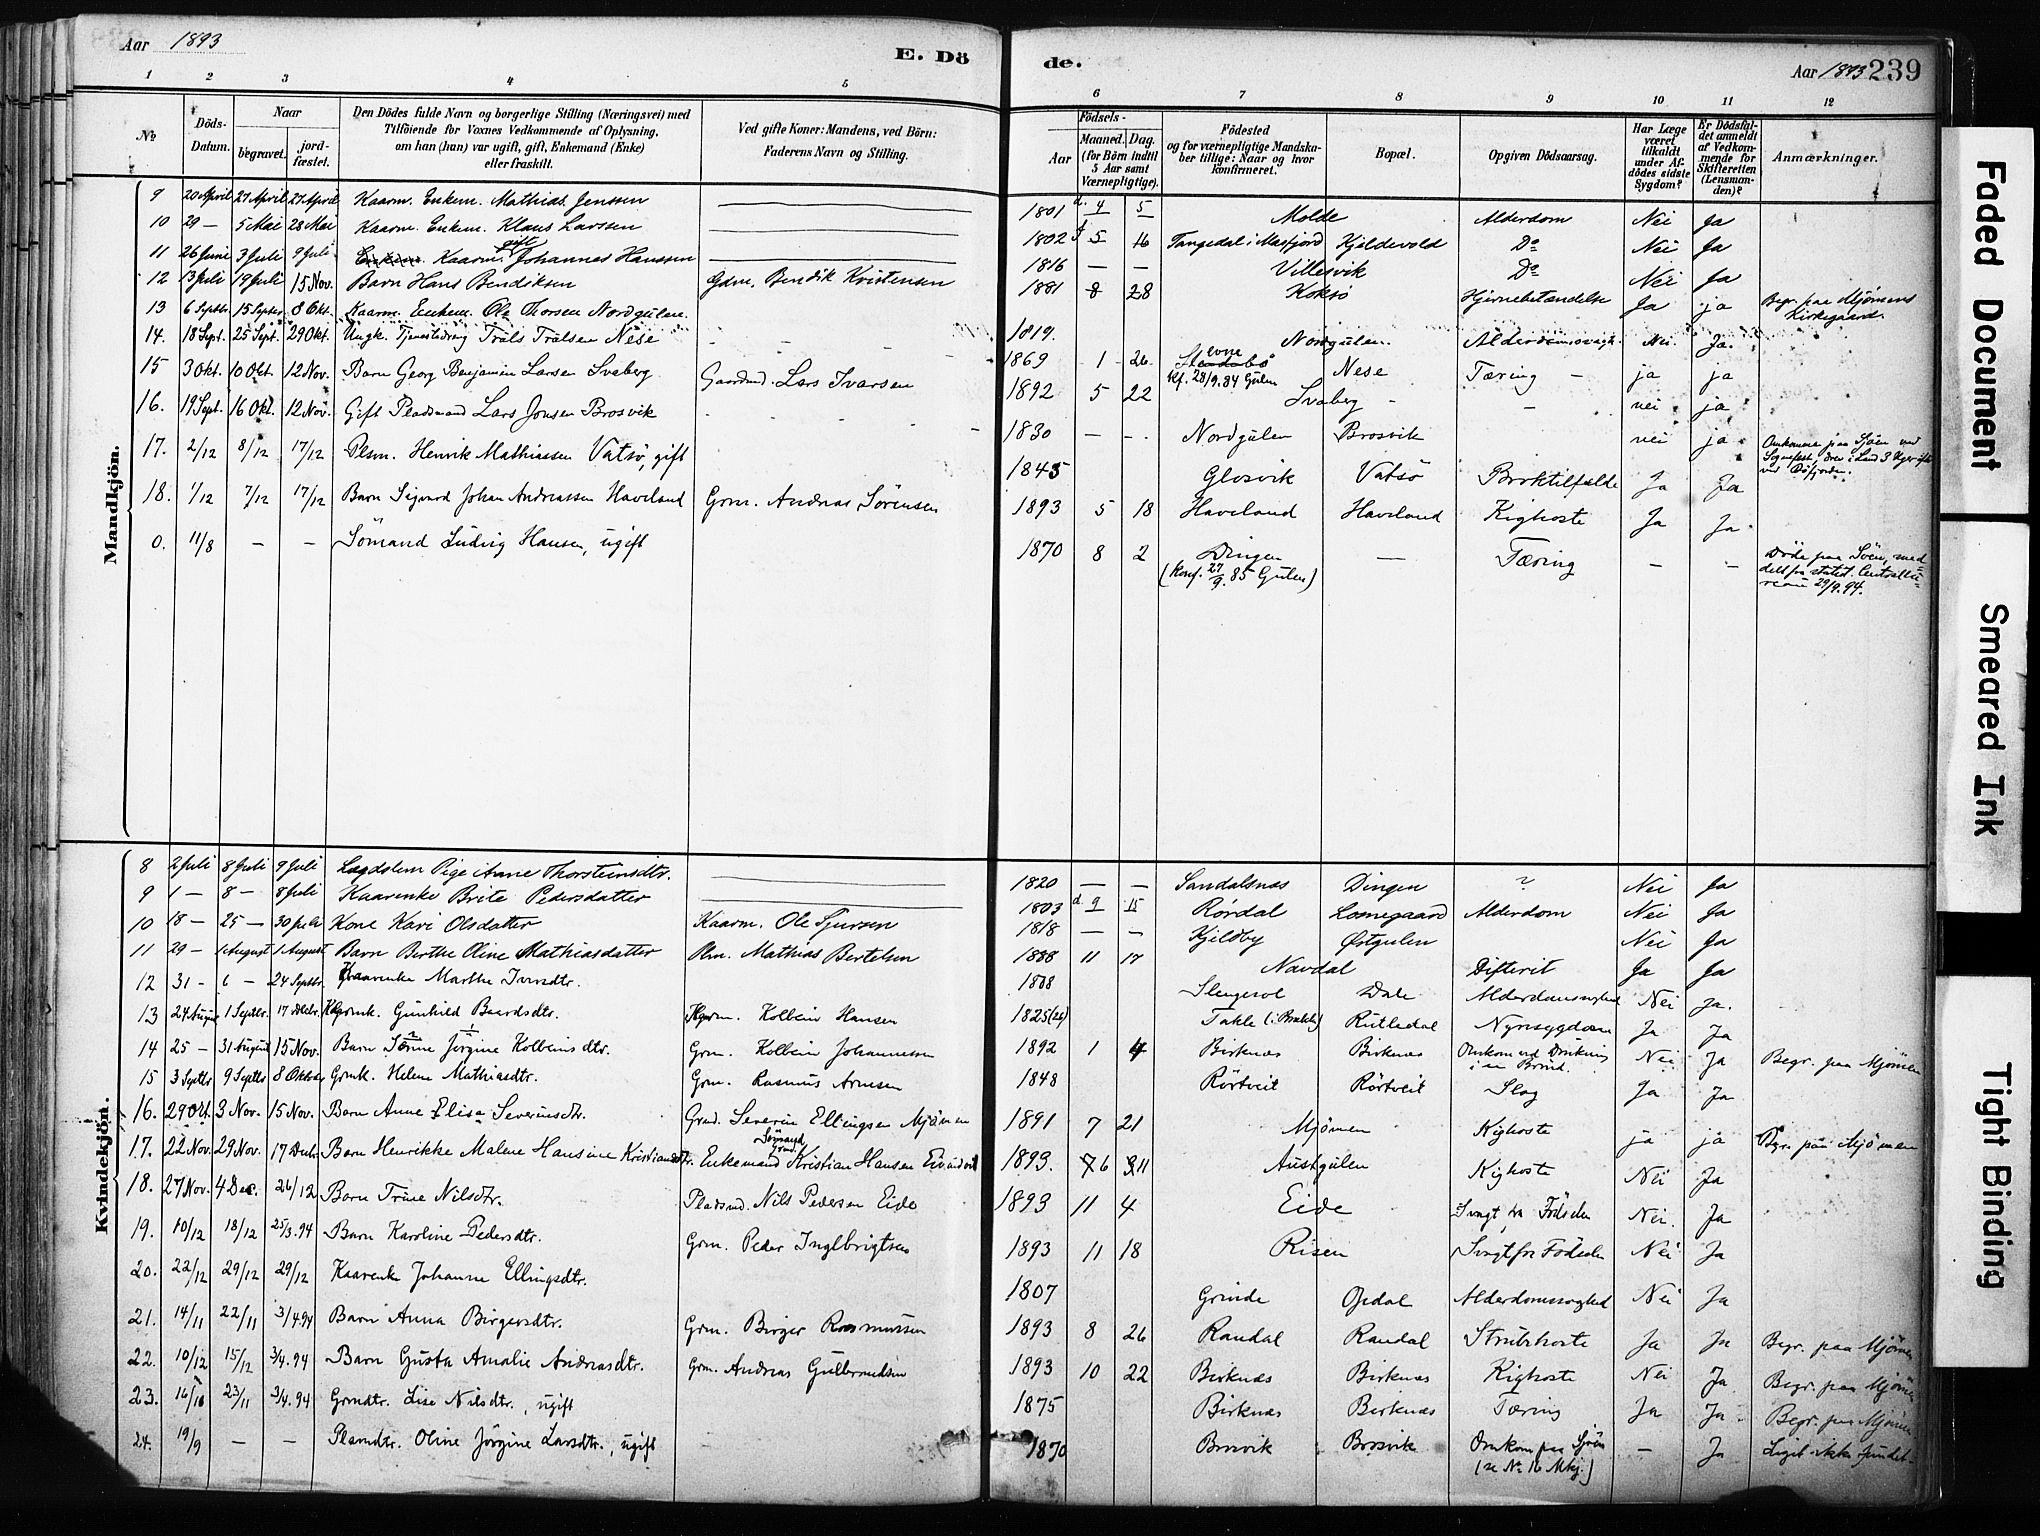 Aar 1893
E. Dö
de.
Aar 1893 239
1 2 3 4 5 6 7 8 9 10 11 12
No
Döds-Datum.
Naar
begravet.
jord-fæstet.
Den Dödes fulde Navn og borgerlige Stilling (Næringsvei) med
Tilföiende for Voxnes Vedkommende af Oplysning,
om han (hun) var ugift, gift, Enkemand (Enke)
eller fraskilt.
Ved gifte Koner: Mandens, ved Börn:
Faderens Navn og Stilling.
Födsels-
Aar
Maaned. Dag.
(for Börn indtil
5 Aar samt
Værnepligtige).
Födested
og for værnepligtige Mandska-
ber tillige: Naar og hvor
konfirmeret.
Bopæl.
Opgiven Dödsaarsag.
Har Læge
været
tilkaldt
under Af-
dödes sidste
Sygdom?
Er Dödsfal-
det anmeldt
af Vedkom-
mende for
Skifteretten
(Lensman-
den)?
Anmærkninger.
Mandkjön.
9 20 April 27 April 27 April Kaarm. Enkem. Mathias Jenssen 1801 d. 4 5 Molde Alderdom Nei Ja
10 29 — 5 Mai 28 Mai Kaarm. Enkem. Klaus Larssen 1802 5 16 Tangedal i Masfjord Kjeldevold Do Nei Ja
11 26 Juni 3 Juli 9 Juli Kaarm. gift Johannes Hanssen 1816 — — Villesvik Do Nei Ja
12 13 Juli 19 Juli 15 Nov. Barn Hans Bendiksen Gdm. Bendik Kristensen 1881 8 28 Koksö Hjernebetændelse Ja ja Begr. paa Mjömens Kirkegaard.
13 6 Septbr 15 Septbr 8 Okt. Kaarm. Enkem. Ole Thorsen Nordgulen. 1819. Nordgulen Alderdomssvagh. Nei. Ja.
14. 18 Sept. 25 Sept. 29 Okt. Ungk. Tjenestedreng Träls Trälsen Nese 1869 1 26 Kf. 28/9.84 Gulen Nese Tæring — ja ja
15 3 Okt. 10 Okt. 12 Nov. Barn Georg Benjamin Larsen Svaberg Gaardmd. Lars Ivarsen 1892 5 22 Svaberg - - nei ja
16. 19 Sept. 16 Okt. 12 Nov. Gift Pladsmand Lars Jonsen Brosvik 1830 — — Nordgulen Brosvik nei ja Omkommen paa Sjöen ved Sognefest, drev i Land 3 Uger efter ved Böfjorden.
17. 2/12 8/12 17/12 Plsm. Henrik Mathiassen Vatsö, gift 1845 Glosvik Vatsö Broktilfælde Ja Ja
18. 1/12 7/12 17/12 Barn Sigvard Johan Andreassen Haveland Grm. Andreas Sörensen 1893 5 18 Haveland Haveland Kighoste Ja Ja
0. 11/8 — — Sömand Ludvig Hansen, ugift 1870 8 2 Dingen — Tæring — — Döde paa Söen, med-
(Konf. 27/9. 85 Gulen) delt fra statist. Centralbu-
reau 29/9.94.
Kvindekjön.
8 2 Juli 8 Juli 9 Juli Lægdslem Pige Anne Thorsteinsdtr. 1820 — — Sandalsnæs Dingen ? Nei Ja
9 1 — 8 — 8 Juli Kaarenke Brite Pedersdatter 1803 d 9 15 Rördal Losnegaard Alderdom Nei Ja
10 18 — 25 — 30 Juli Kone Kari Olsdatter Kaarm. Ole Sjursen 1818 — — Kjeldby Østgulen Nei Ja
11 29 — 1 August 1 August Barn Berthe Oline Mathiasdatter Plm. Mathias Bertelsen 1888 11 17 Navdal Difterit Ja Ja
12 31 — 6 — 24 Septbr. Kaarenke Marthe Iversdtr. 1808 Slengesol Dale Alderdomssvaghed Nei Ja.
13 24 August 1 Septbr. 17 Decbr. Gunhild Baardsdtr. Kolbein Hansen 1825 (24) Takle (i Brekke) Rutledal Nyresygdom Ja Ja
14 25 — 31 August 15 Nov. Barn Sönne Jörgine Kolbeinsdtr. Grm. Kolbein Johannessen 1892 1 4 Birknæs Birknæs Omkom ved Drukning i en Brönd. Nei Ja Begr. paa Mjömen
15 3 Septbr 9 Septbr 8 Oktbr Grmk. Helene Mathiasdtr. Grm. Rasmus Arnesen 1848 Rörtveit Rörtveit Slag Ja Ja
16. 29 Okt. 3 Nov. 15 Nov. Barn Anne Elisa Severinsdtr. Grmd. Severin Ellingsen Mjömen 1891 7 21 Mjömen Kighoste ja ja Begr. paa Mjömen
17. 22 Nov. 29 Nov. 17 Decbr. Barn Henrikke Malene Hansine Kristiansdtr. Enkemand Sömand Kristian Hansen Eivindvik 1893. 6 11 Austgulen Kighoste Nei Ja
18. 27 Nov. 4 Dec. 26/12 Barn Trine Nilsdtr. Pladsmd. Nils Pedersen Eide 1893 11 4 Eide Svagt fra Födselen Nei. Ja
19. 10/12 18/12 25/3.94 Barn Karoline Pedersdtr. Grm. Peder Ingelbrigtsen 1893 11 18 Risen Svagt fra Födselen Nei Ja
20. 22/12 29/12 29/12 Kaarenke Johanne Ellingsdtr. 1807 Grinde Opdal Alderdomssvaghed Nei Ja
21. 14/11 22/11 3/4.94 Barn Anna Birgersdtr. Grm. Birger Rasmussen 1893 8 26 Randal Randal Strubehoste Ja Ja Begr. paa Mjömen
22. 10/12 15/12 3/4.94 Barn Gusta Amalie Andreasdtr. Grm. Andreas Gulbrandsen 1893 10 22 Birknæs Birknæs Kighoste Nei Ja Begr. paa Mjömen
23. 16/10 23/11 3/4.94 Grmdtr. Lise Nilsdtr., ugift 1875 Birknæs Birknæs Tæring Ja Ja Begr. paa Mjömen
24. 19/9 — — Plsmdtr. Oline Jörgine Larsdtr., ugift 1870 Brosvik Brosvik Omkom paa Sjöen — Ja Liget ikke fundet.
(se No 16 Mkj.)
Faded Document
Smeared Ink
Tight Binding